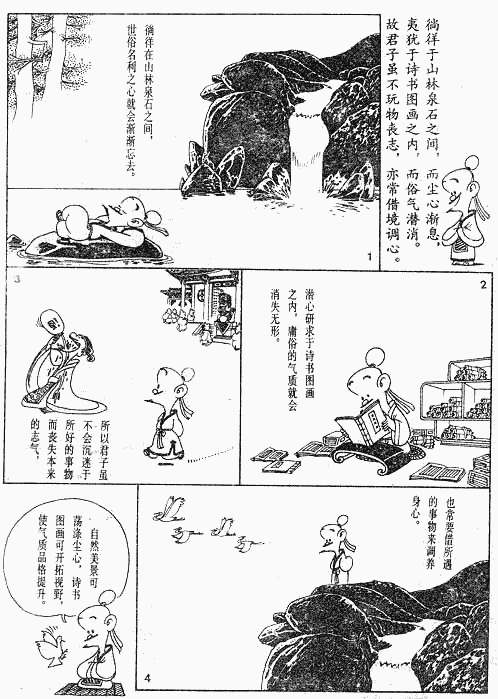 徜徉于山林泉石之间，而尘心渐息，
夷犹于诗书图画之内，而俗气潜消。
故君子虽不玩物丧志，亦常借境调心。
徜徉在山林泉石之间，
世俗名利之心就会渐渐忘去。
1
2
潜心研求于诗书图画
之内，庸俗的气质就会
消失无形。
3
所以君子虽
不会沉迷于
所好的事物
而丧失本来
的志气，
也常要借所遇
的事物来调养
身心。
4
自然美景可
荡涤尘心，诗书
图画可开拓视野，
使气质品格提升。